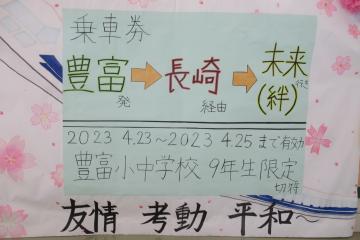 乗車券
豊富発➡長崎経由➡未来(絆)行き
2023 4.23～2023 4.25まで有効
豊富小中学校 9年生限定
切符
友情 考動 平和～